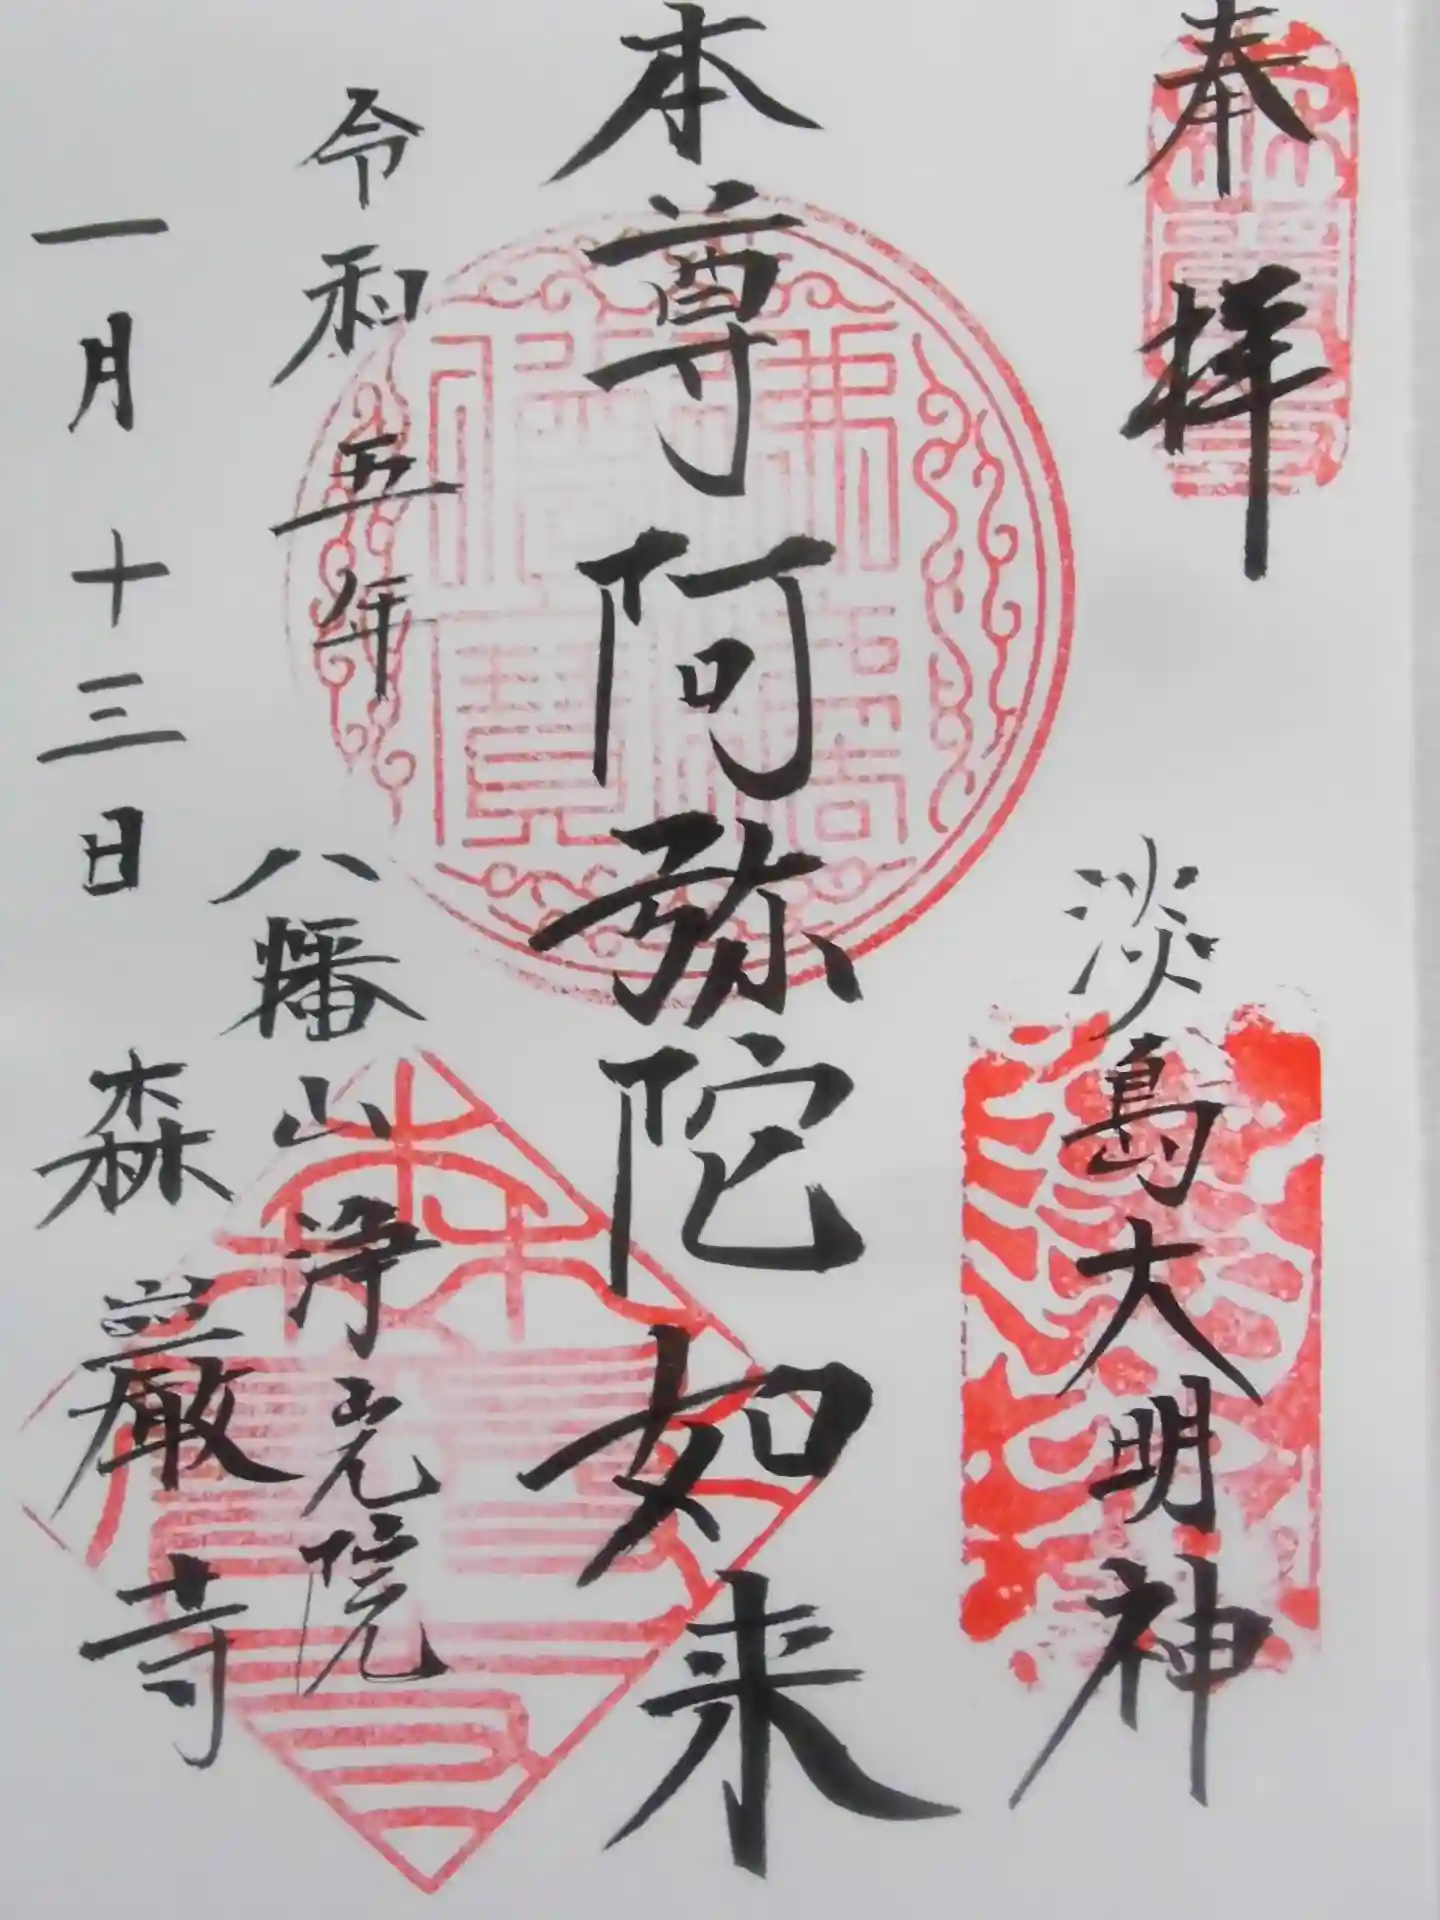 奉拝
淡島大明神
本尊阿弥陀如来
令和五年
一月十三日
八幡山浄光院
森巌寺
佛法僧寳